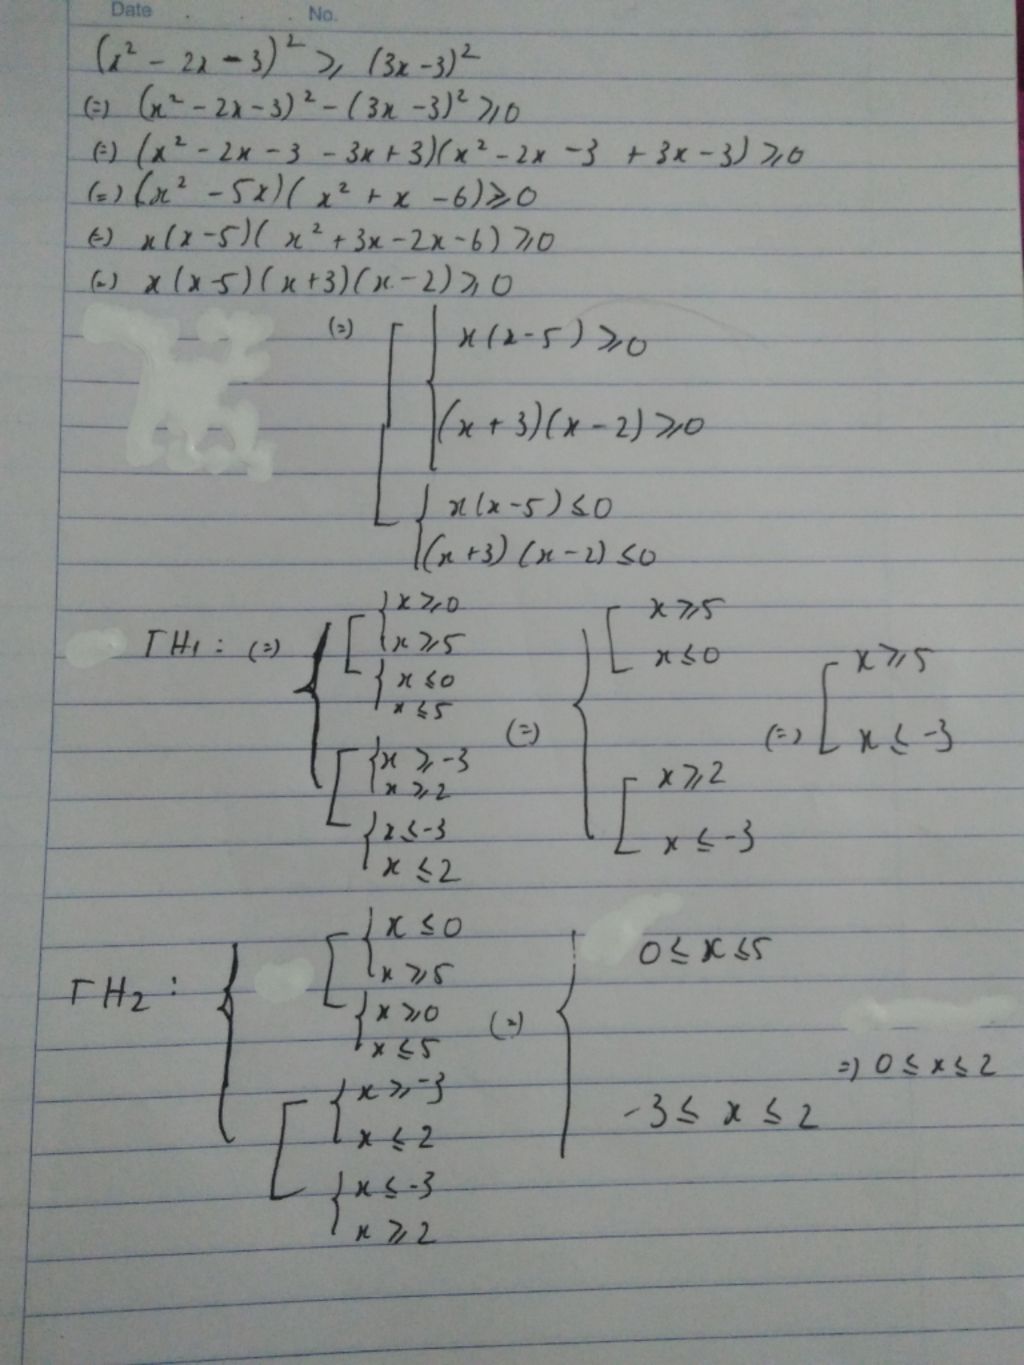 Date No.
(x² - 2x - 3)² ⩾ (3x - 3)²
(=) (x² - 2x - 3)² - (3x - 3)² ⩾ 0
(=) (x² - 2x - 3 - 3x + 3)(x² - 2x - 3 + 3x - 3) ⩾ 0
(=) (x² - 5x)(x² + x - 6) ⩾ 0
(=) x(x - 5)(x² + 3x - 2x - 6) ⩾ 0
(=) x(x - 5)(x + 3)(x - 2) ⩾ 0
(=) [ { x(x - 5) ⩾ 0
(x + 3)(x - 2) ⩾ 0
{ x(x - 5) ≤ 0
(x + 3)(x - 2) ≤ 0
TH1 : (=) { [ { x ⩾ 0
x ⩾ 5
{ x ≤ 0
x ≤ 5
[ { x ⩾ -3
x ⩾ 2
{ x ≤ -3
x ≤ 2
(=) { [ x ⩾ 5
x ≤ 0
[ x ⩾ 2
x ≤ -3
(=) [ x ⩾ 5
x ≤ -3
TH2 : { [ { x ≤ 0
x ⩾ 5
{ x ⩾ 0
x ≤ 5
[ { x ⩾ -3
x ≤ 2
{ x ≤ -3
x ⩾ 2
(=) { 0 ≤ x ≤ 5
-3 ≤ x ≤ 2
=) 0 ≤ x ≤ 2